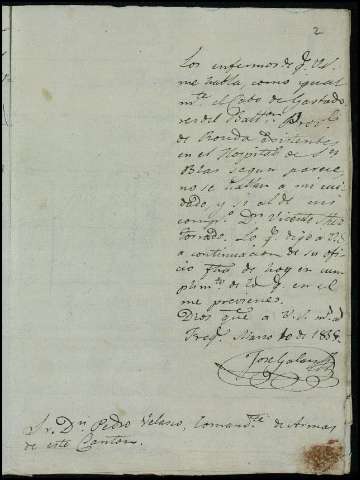 2
Los enfermos de q. V.S.
me habla, como igual
mte. el Cabo de Gastado
res del Batn. Provl.
de Ronda existentes
en el Hospital de Sn.
Blas segun parece
no se hallan a mi cui
dado, y si al de mi
compo. Dn. Vicente
Lo q. digo a V.S.
a continuacion de su ofi
cio fha. de hoy en cum
plimto. de lo q. en el
me previene.
Dios gue. a V.S. ms. as.
Marzo de
Jose Galan
Sr. Dn. Pedro Velasco, Comandte. de Armas
de este Canton.